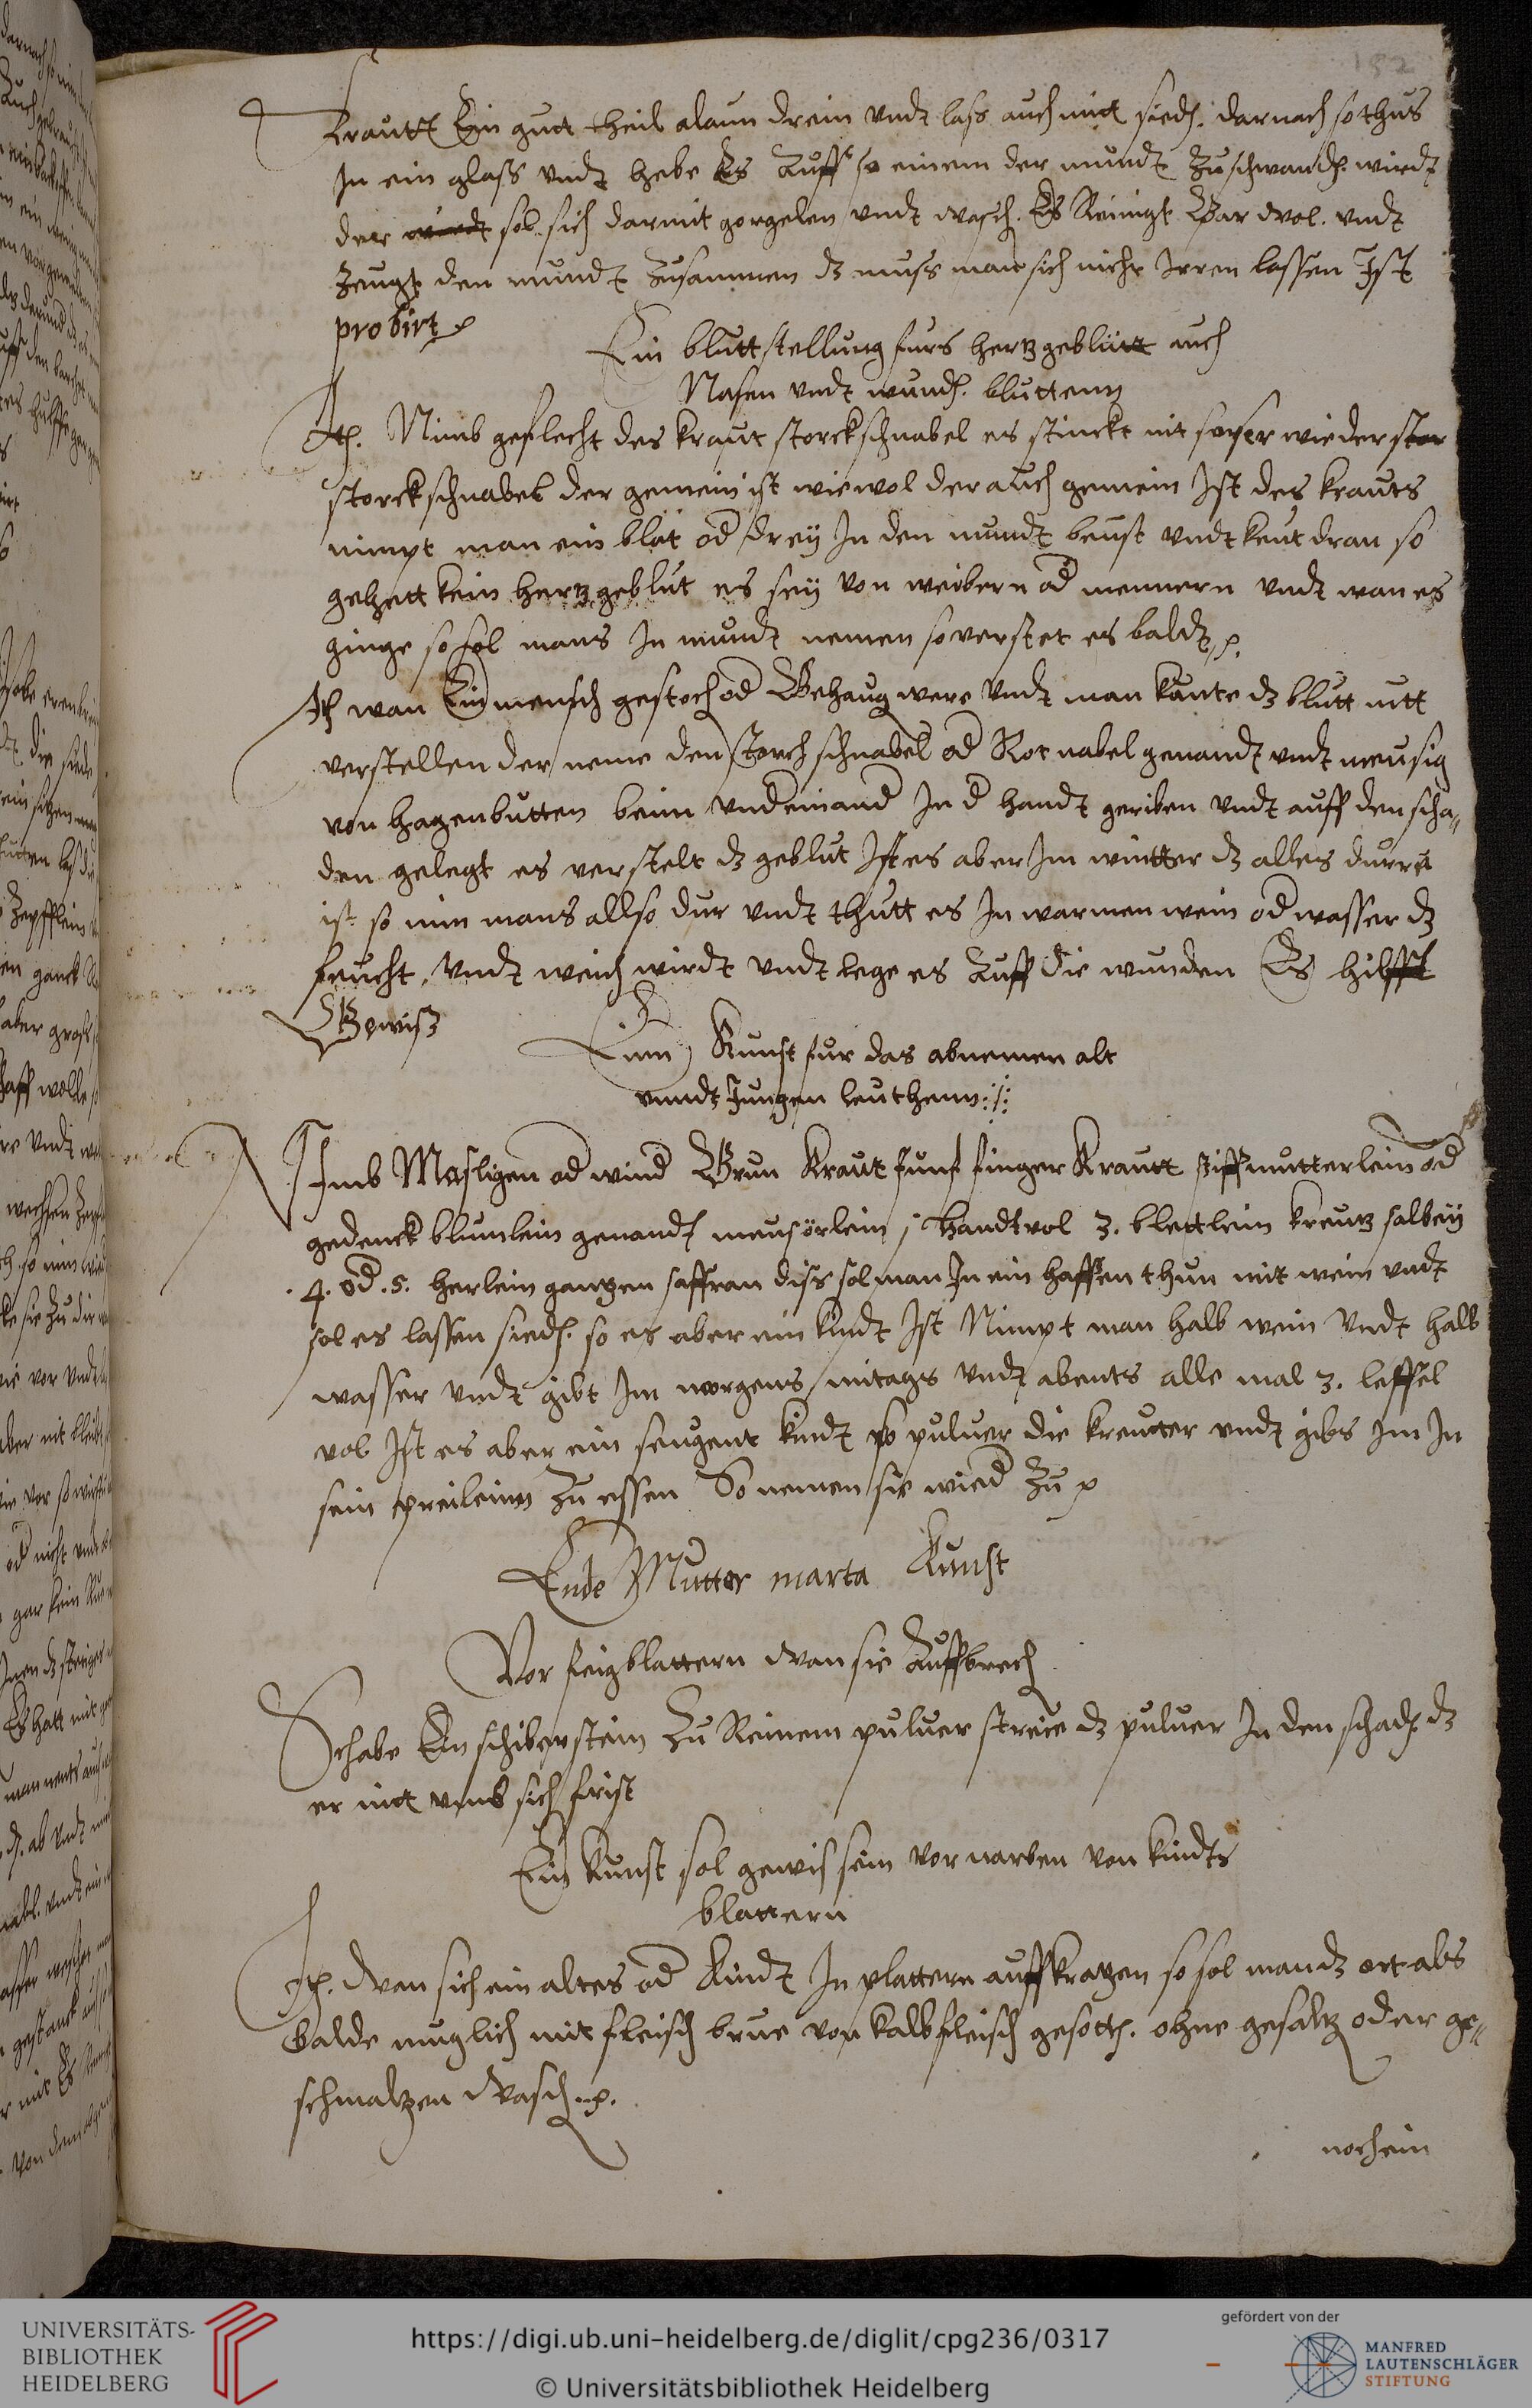 152
krautt Ein gutt theil alaun drein vndt lass auch mitt siedē. darnach so thus
In ein glass vndt hebe Es Auff so einem der mundt Zuschwandē. wirdt
der wirdt sol sich darmit gorgelen vndt waschē. Es Reinigt Gar wol. vndt
Zeugt den mundt Zusammen dz muss man sich nicht Irren lassen Ist
probirt
Ein bluttstellung furs hertzgeblütt auch
Nasen vndt wundē. bluttenn
Itē. Nimb geflecht des kraut storckschnabel es stinckt nit so ser wie der stor
storckschnabel der gemein ist wie wol der auch gemein Ist des krauts
nimpt man ein blat od drey In den mundt beust vndt keut dran so
gehett kein hertzgeblut es sey von weibern od mennern vndt wan es
ginge so sol mans In mundt nemen so verstet es baldt
Itē wan Ein mensch gestochē od Gehaug were vndt man kante dz blutt nitt
verstellen der neme den storch schnabel od Rot nabel genandt vndt meusig
von hagenbutten beim vndeinand In d handt geriben vndt auff den scha„
den gelegt es verstelt dz geblut Ist es aber Im wintter dz alles dürr
ist so nim mans allso dur vndt thutt es In warmen wein od wasser dz
feucht vndt weich wirdt vndt lege es Auff die wunden Es hilfft
Gewiß
Einn Kunst fur das abnemen alt
vnndt Jungen leuthenn
NImb Maslgen od wind Grun Kraut funf finger Krautt stiffmutterlein od
gedenck blumlein genandt meusörlein j handtvol 3. blettlein kreutz salbey
4. od. 5. herlein gantzen saffran diss sol man In ein haffen thun mit wein vndt
sol es lassen siedē. so es aber ein kindt Ist Nimpt man halb wein vndt halb
wasser vndt gibt Im morgens mitags vndt abents alle mal 3. leffel
vol Ist es aber ein seugent kindt so puluer die kreutter vndt gibs Im In
sein preilein Zu essen So nemen sie wied Zu
Ende Mutter marta Kunst
Vor feigblattern wan sie Auffbrechē
Schabe Ein schiberstein Zu Reinem puluer streue dz puluer In den schadē dz
er nitt vmb sich frist
Ein Kunst sol gewis sein vor narben von kindts
blattern
Itē. Wan sich ein altes od Kindt In plattern auffkratzen so sol man dz ort als
balde muglich mit fleisch brue von kalbfleisch gesottē. ohne gesaltz oder ge„
schmaltzen Waschē.
noch ein
UNIVERSITÄTS-
BIBLIOTHEK
HEIDELBERG
https://digi.ub.uni-heidelberg.de/diglit/cpg236/0317
© Universitätsbibliothek Heidelberg
gefördert von der
MANFRED
LAUTENSCHLÄGER
STIFTUNG